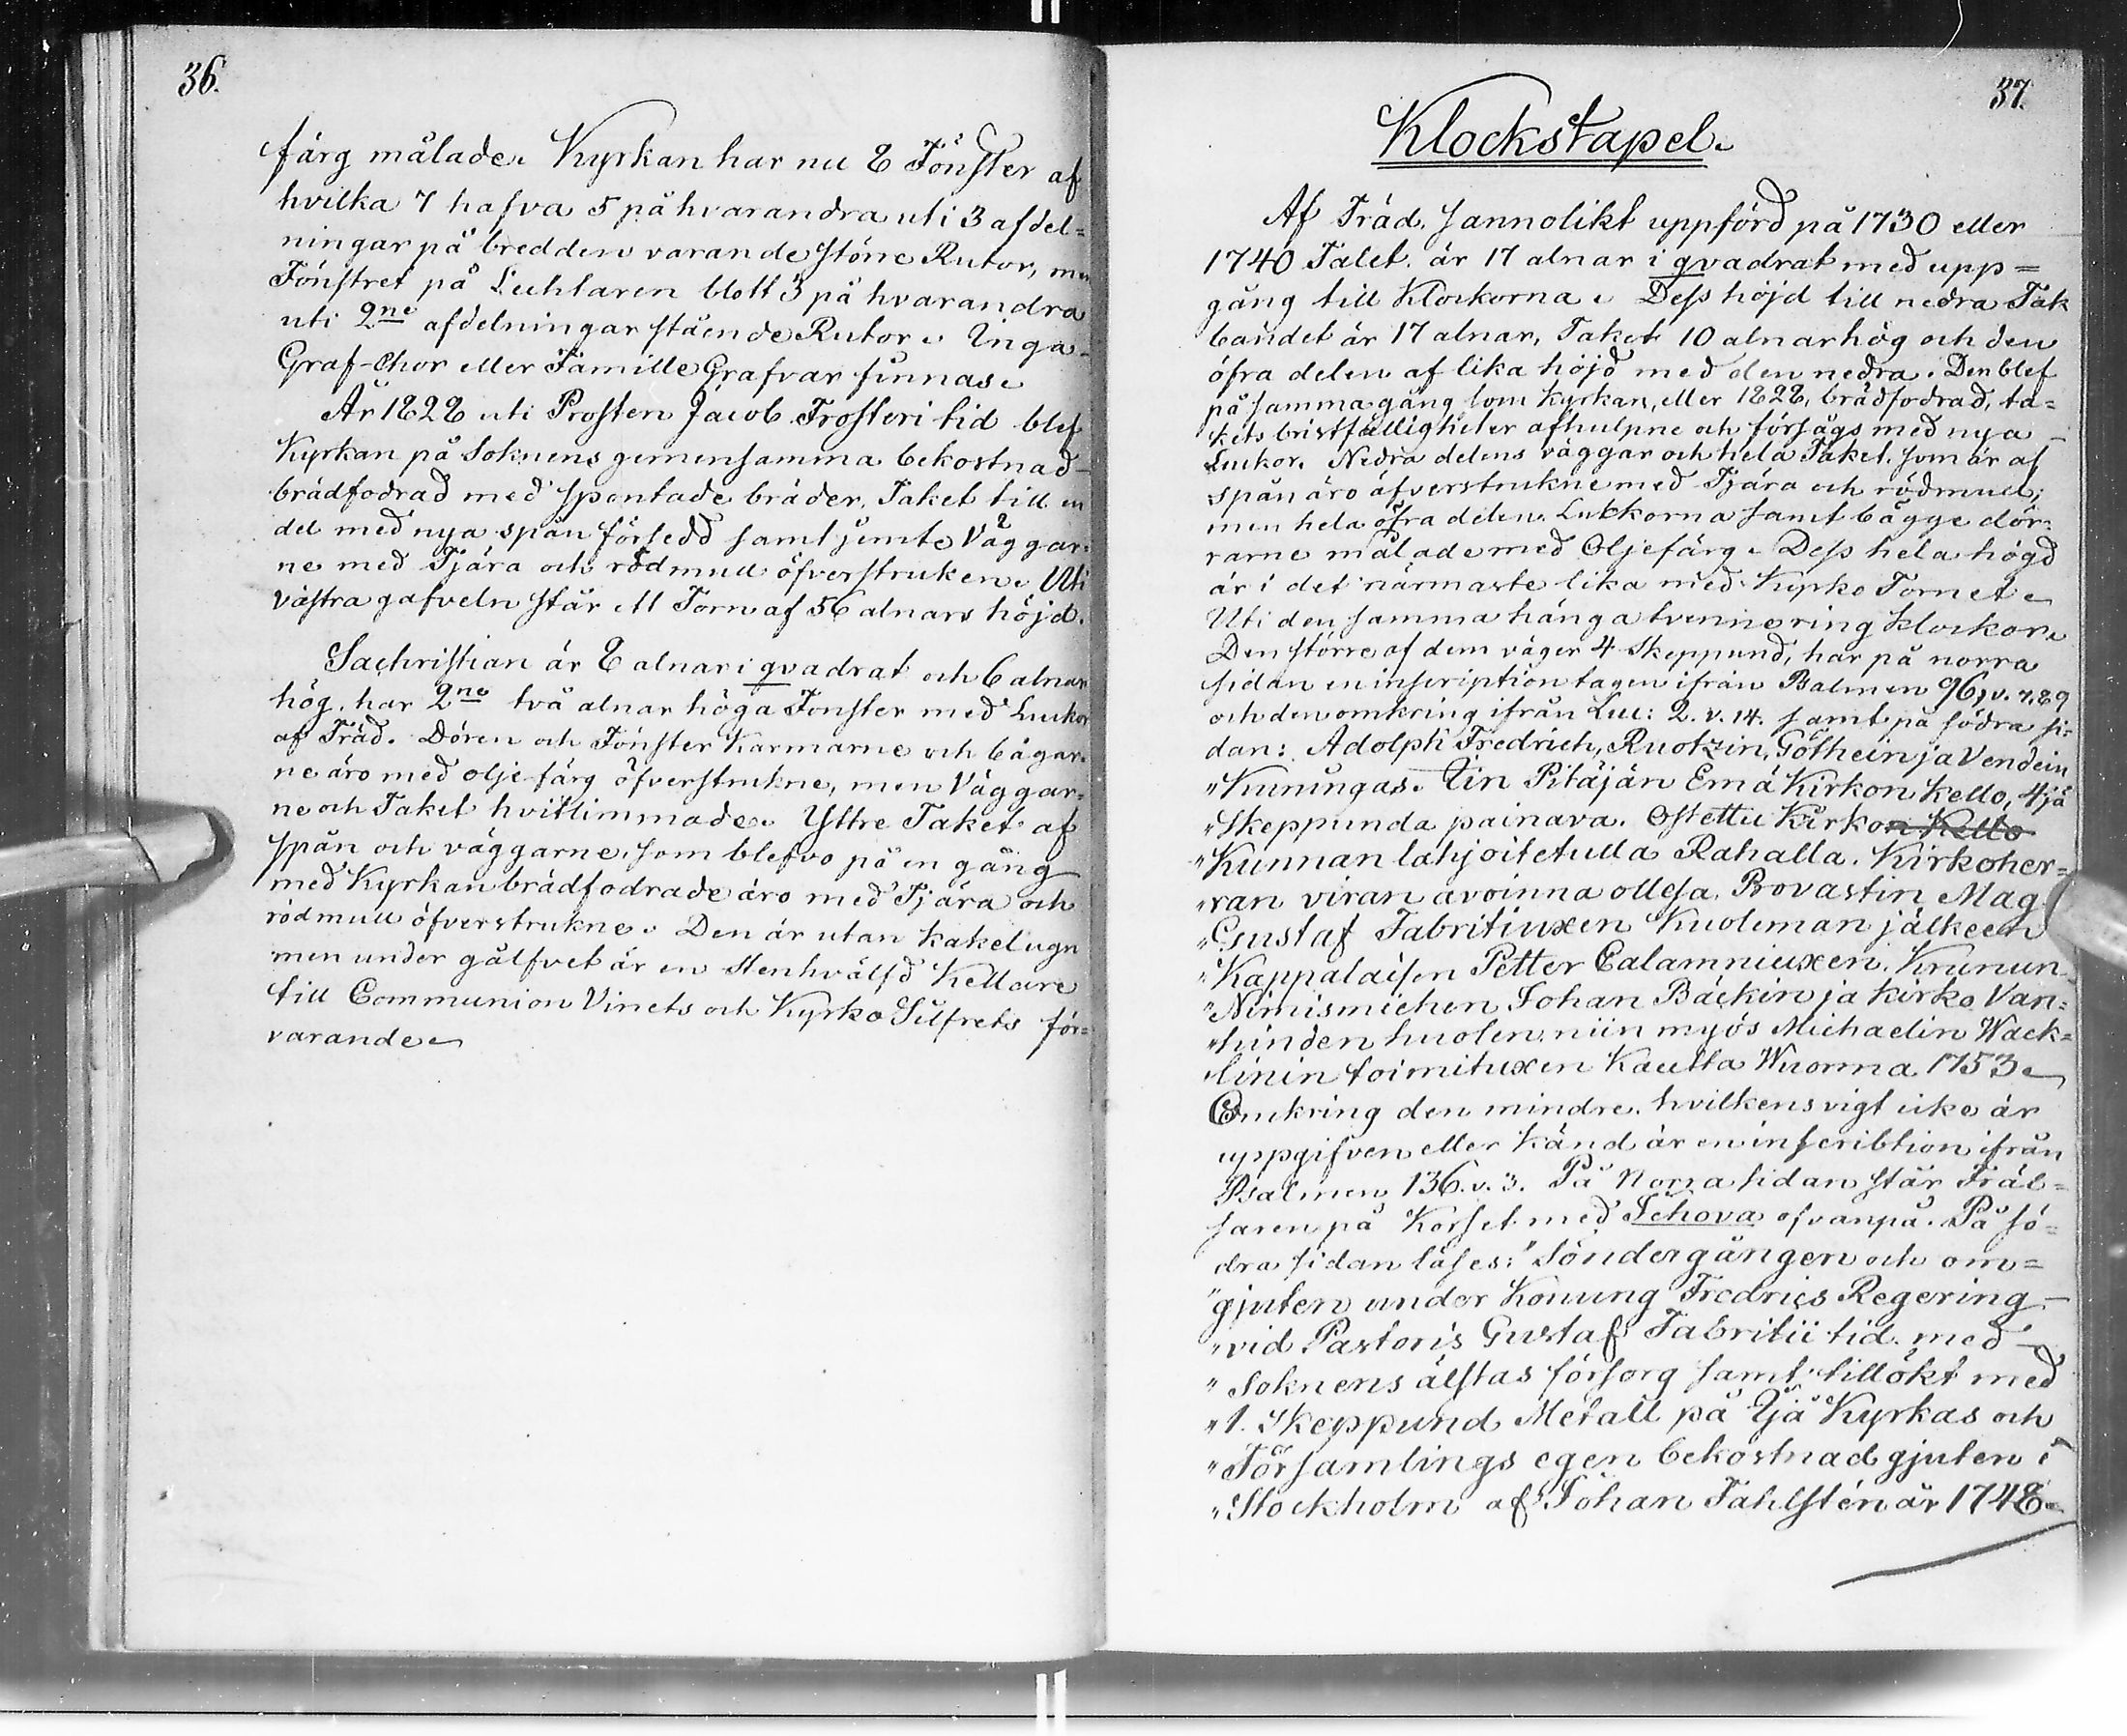 36.
färg målade. Kyrkan har nu 8 Fönster af
hvilka 7 hafva 5 på hvarandra uti 3 afdel=
ningar på bredden varande störie Rutor, men
Fönstret på Luchtaren blott 3 på hvarandra
uti 2ne afdelningar stående Rutor. Inga
Graf-Chor eller Famille Grafvar finnas.
År 1828 uti Prosten Jacob Frosteri tid blef
Kyrkan på Soknens gemensamma bekostnad
brädfodrad med spontade bräder. Taket till en
del med nya spån försedd samt jemte Väggar=
ne med Tjära och rödmull öfverstruken. Uti
västra gafveln står ett Torn af 56 alnars höjd.
Sachristian är 8 alnar i qvadrat och 6 alnar
hög. har 2ne två alnar höga Fönster med Luckor
af Träd. Dören och Fönster Karmarne och bågar=
ne äro med olje färg öfverstrukne, men Väggar=
ne och Taket hvitlimmade. Yttre Taket af
spån och väggarne, som blefvo på en gång
med Kyrkan brädfodrade äro med Tjära och
rödmull öfverstrukne. Den är utan kakelugn
men under gålfvet är en stenhvälfd Kellare
till Communion Vinets och Kyrko Silfrets för=
varande.
37.
Klockstapel.
Af Träd. sannolikt uppförd på 1730 eller
1740 Talet. är 17 alnar i qvadrat med upp=
gång till Klockorna. Dess höjd till nedra Tak
bandet är 17 alnar, Taket 10 alnar hög och den
öfra delen af lika höjd med den nedra. Den blef
på samma gång som Kyrkan, eller 1828, brädfodrad, ta=
kets bristfälligheter afhulpne och försågs med nya
Luckor. Nedra delens väggar och hela Taket. som är af
spån äro öfverstrukne med Tjära och rödmull,
men hela öfra delen. Luckorna samt bägge dör=
rarne målade med Oljefärg. Dess hela högd
är i det närmaste lika med Kyrko Tornet.
Uti den samma hänga tvenne ring klockor.
Den större af dem väger 4 Skeppund, har på norra
sidan en inscription tagen ifrån Psalmen 96, v. 7.8.9
och den omkring ifrån Luc: 2. v. 14. samt på södra si=
dan: Adolph Fredrich, Ruotzin, Götheinja Vendein
„Kuningas. Iin Pitäjän Emä Kirkon Kello, 4jä
„Skeppunda painava. Ostettu Kirkon Kello
„Kunnan lahjoitetulla Rahalla. Kirkoher=
„ran viran avoinna ollesa. Provastin Mag.
„Gustaf Fabritiuxen Kuoleman jälkeen
„Kappalaisen Petter Calamniuxen. Krunun
„Nimismiehen Johan Bäckin ja kirko Van=
„hinden huolen, niin myös Michaelin Wack=
linin toimituxen Kautta Wuonna 1753.
Omkring den mindre. hvilkens vigt icke är
uppgifven eller känd är en inscribtion ifrån
Psalmen 136. v. 3. På Norra sidan står Fräl=
saren på Korset med Jehova ofvanpå. På sö=
dra sidan läses: "Söndergången och om=
"gjuten under Konung Fredrics Regering
„vid Pastoris Gustaf Fabritii tid. med
„Soknens älstas försorg samt tillökt med
„1. Skeppund Metall på Ijå Kyrkas och
„Församlings egen bekostnad gjuten i
„Stockholm af Johan Fahlstén år 1748.